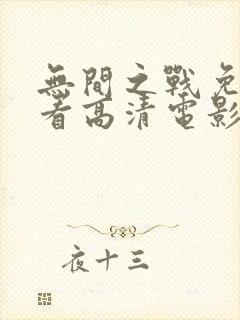 無間之戰免
看高清電影
夜十三